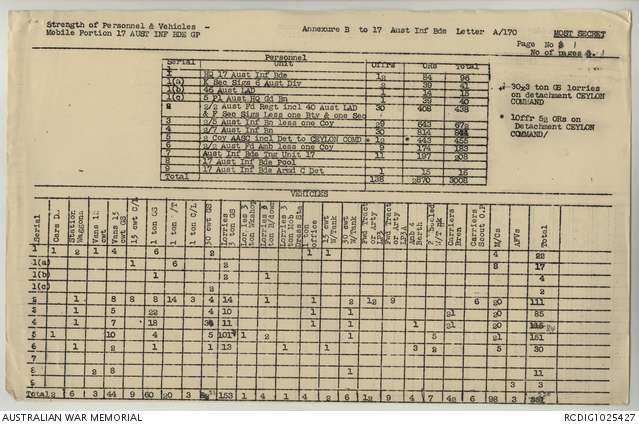 Strength of Personnel & Vehicles - Annexure B to 17 Aust Inf Bde Letter A/170 MOST SECRET
Mobile Portion 17 AUST INF BDE GP
Page No 1
No of pages
Personnel
Serial Unit Offrs ORs Total
1 HQ 17 Aust Inf Bde 12 84 96
1(a) K Sec Sigs 6 Aust Div 2 39 41
1(b) 46 Aust LAD 1 14 15
1(c) 5 Pl Aust HQ Gd Bn 1 39 40
2 2/2 Aust Fd Regt incl 40 Aust LAD 30 408 438
& F Sec Sigs less One Bty & one Sec
3 2/5 Aust Inf Bn less one Coy 29 643 672
4 2/7 Aust Inf Bn 30 814 844
5 2 Coy AASC incl Det to CEYLON COMD * 12 * 443 455
6 2/2 Aust Fd Amb less one Coy 9 174 183
7 Aust Inf Bde Tng Unit 17 11 197 208
8 17 Aust Inf Bde Pool
9 17 Aust Inf Bde Armd C Det 1 15 16
Total 138 2870 3008
30x3 ton GS lorries
on detachment CEYLON
COMMAND
* 1Offr 52 ORs on
Detachment CEYLON
COMMAND/
VEHICLES
Serial
Cars
Station Waggons
Vans 12 cwt
Vans 15 cwt GS
15 cwt C/L
1 ton GS
1 ton /T
1 ton C/L
30 cwt GS
Lorries 3 ton GS
Lorries 3 ton Wkshop
Lorries 3 ton B/down
Lorries 3 ton Mob Dress Sta
1 ton office
15 cwt W/Tank
30 cwt W/Tank
Fwd Tract or Arty LP3
Fwd Tract or Arty LP3A
Amb 4 Berth
Carriers Bren
Carriers Scout O.P
M/Cs
AFVs
Total
1 1 2 1 4 6 2 1 1 4 22
1(a) 1 6 2 8 17
1(b) 1 2 1 4
1(c) 2 2
2 1 8 8 8 14 3 4 14 1 2 12 9 6 20 111
3 1 5 22 4 10 1 1 21 20 85
4 1 7 18 11 1 1 21 20
5 1 10 4 5 101 1 2 5 21 151
6 1 2 1 1 13 1 1 3 2 5 30
7
8 2 8 1 11
9 3 3
Total 2 6 3 44 9 60 20 3 153 1 4 1 4 2 6 12 9 4 7 42 6 98 3
AUSTRALIAN WAR MEMORIAL RCDIG1025427